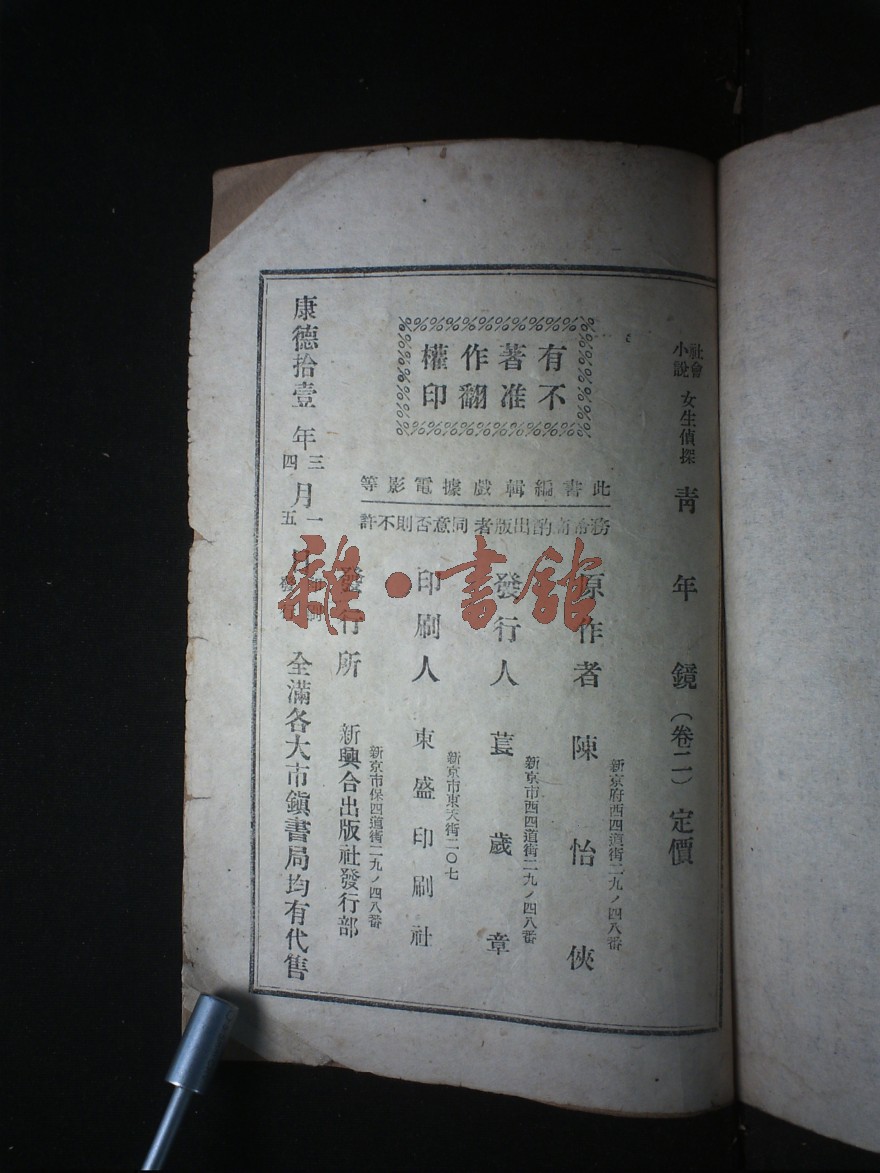 社會小說 女生偵探 靑年鏡（卷二）定價
有著作權
不准翻印
此書編輯戲據電影等
務希商酌出版者同意否則不許
新京府西四道街二九ノ四八番
原作者 陳怡俠
新京市西四道街二九ノ四八番
發行人 萇歲章
新京市東天街二〇七
印刷人 東盛印刷社
新京市保四道街二九ノ四八番
發行所 新興合出版社發行部
康德拾壹年三月一日印刷
四 五 發行
全滿各大市鎭書局均有代售
雜·書館